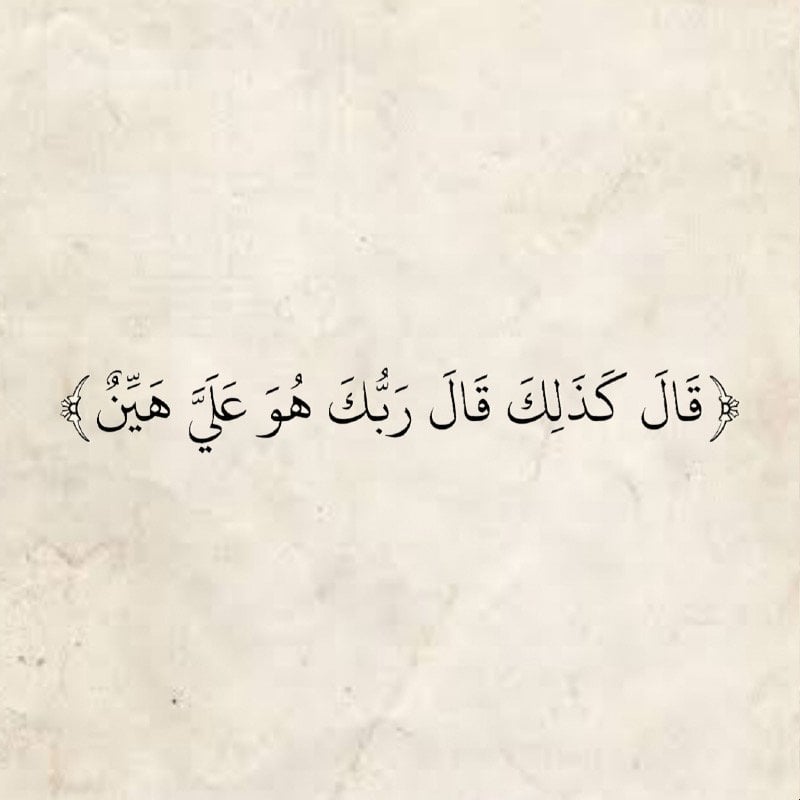 ﴿قَالَ كَذَلِكَ قَالَ رَبُّكَ هُوَ عَلَيَّ هَيِّنٌ﴾